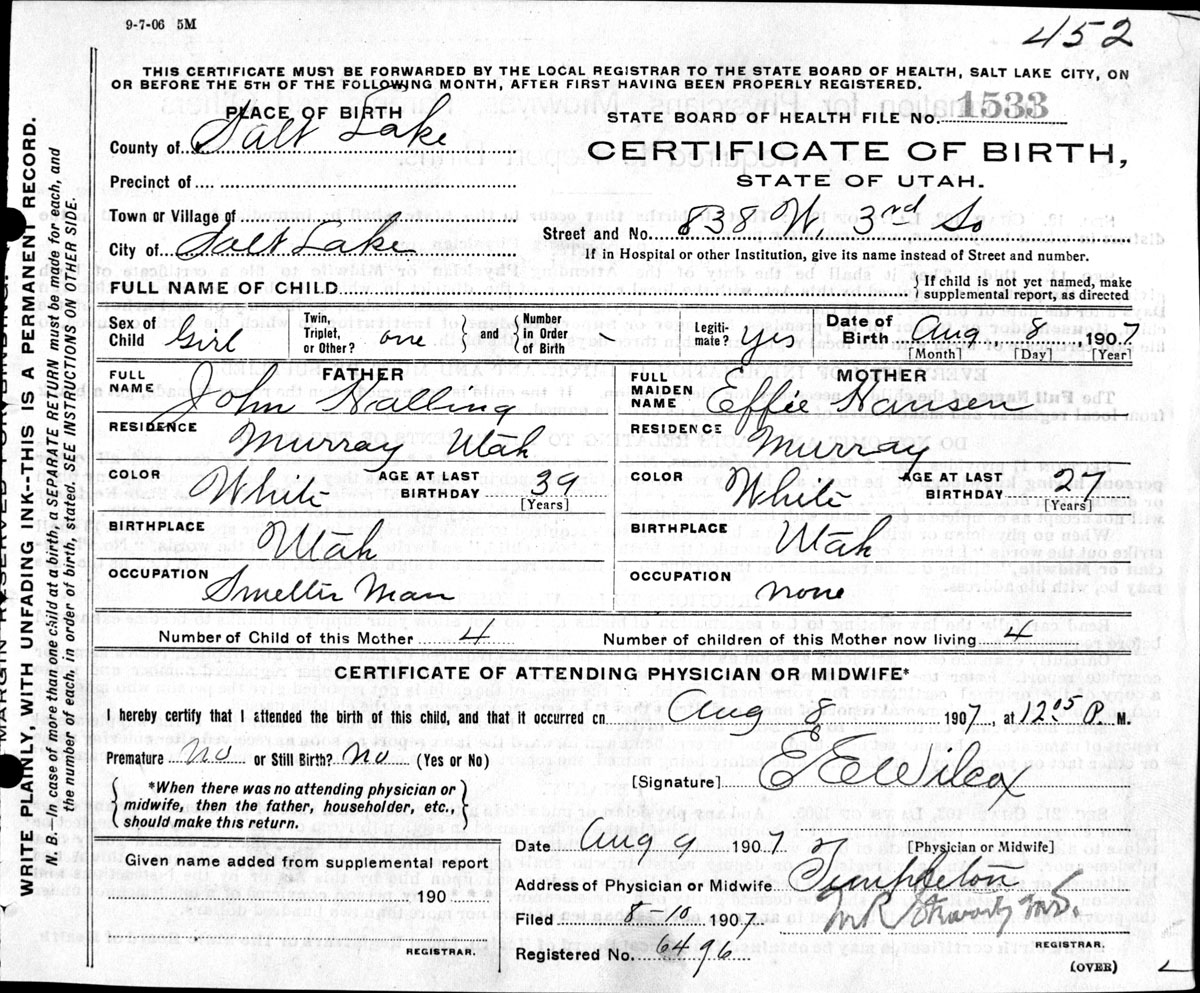 9-7-06 5M
452
THIS CERTIFICATE MUST BE FORWARDED BY THE LOCAL REGISTRAR TO THE STATE BOARD OF HEALTH, SALT LAKE CITY, ON
OR BEFORE THE 5TH OF THE FOLLOWING MONTH, AFTER FIRST HAVING BEEN PROPERLY REGISTERED.
PLACE OF BIRTH
STATE BOARD OF HEALTH FILE No. 1533
County of Salt Lake
CERTIFICATE OF BIRTH,
STATE OF UTAH.
Precinct of
Town or Village of
Street and No. 838 W. 3rd So
City of Salt Lake
If in Hospital or other Institution, give its name instead of Street and number.
FULL NAME OF CHILD
} If child is not yet named, make
supplemental report, as directed
Sex of Child Girl
Twin, Triplet, or Other? one } and { Number in Order of Birth
Legiti-mate? yes
Date of Birth Aug 8 1907
[Month] [Day] [Year]
FATHER
FULL NAME John Nalling
MOTHER
FULL MAIDEN NAME Effie Hansen
RESIDENCE Murray Utah
RESIDENCE Murray
COLOR White AGE AT LAST BIRTHDAY 39 [Years]
COLOR White AGE AT LAST BIRTHDAY 27 [Years]
BIRTHPLACE Utah
BIRTHPLACE Utah
OCCUPATION Smelter Man
OCCUPATION none
Number of Child of this Mother 4
Number of children of this Mother now living 4
CERTIFICATE OF ATTENDING PHYSICIAN OR MIDWIFE*
I hereby certify that I attended the birth of this child, and that it occurred on Aug 8 1907, at 12 05 P. M.
Premature no or Still Birth? no (Yes or No)
[Signature] E E Wilcox
{ *When there was no attending physician or
midwife, then the father, householder, etc.,
should make this return. }
[Physician or Midwife]
Date Aug 9 1907
Given name added from supplemental report
190
Address of Physician or Midwife Templeton
Filed 8-10 1907
REGISTRAR.
Registered No. 6496
REGISTRAR.
(OVER)
MARGIN RESERVED FOR BINDING.
WRITE PLAINLY, WITH UNFADING INK--THIS IS A PERMANENT RECORD.
N. B.—In case of more than one child at a birth, a SEPARATE RETURN must be made for each, and
the number of each, in order of birth, stated. SEE INSTRUCTIONS ON OTHER SIDE.